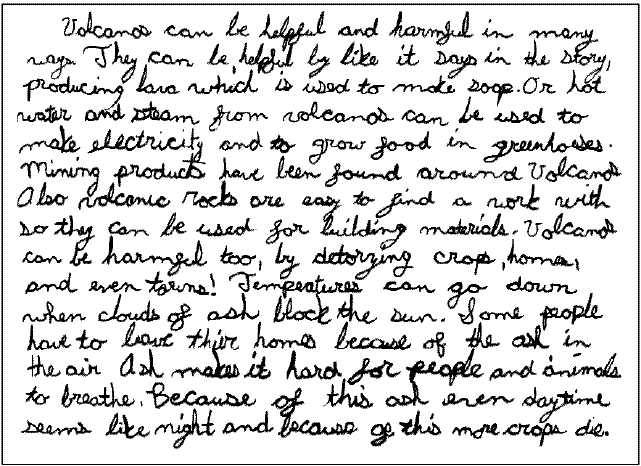 Volcanos can be helpful and harmful in many
ways. They can be helpful by like it says in the story,
producing lava which is used to make soap. Or hot
water and steam from volcanos can be used to
make electricity and to grow food in greenhouses.
Mining products have been found around Volcanos
Also volcanic rocks are easy to find a work with
so they can be used for building materials. Volcanos
can be harmful too, by detorying crop, homes,
and even towns! Temperatures can go down
when clouds of ash block the sun. Some people
have to leave their homes because of the ash in
the air Ash makes it hard for people and animals
to breathe. Because of this ash even daytime
seems like night and because of this more crops die.